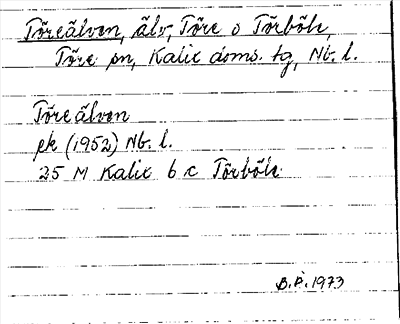 Töreälven, älv, Töre o Törböle,
Töre sn, Kalix doms. tg, Nb. l.
Töreälven
pk (1952) Nb. l.
25 M Kalix 6 c Törböle
B.P. 1973